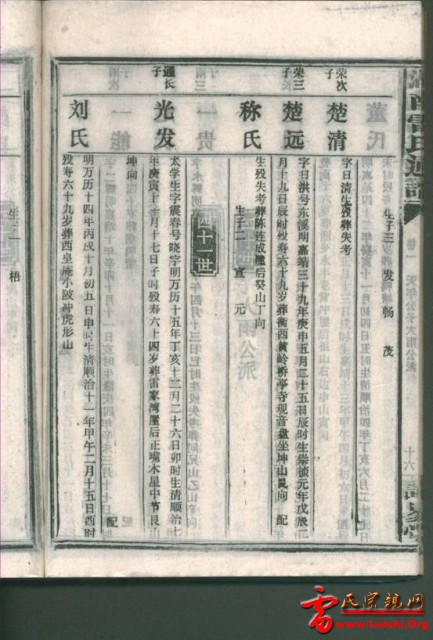 生子三 发 畅 茂
荣次子
楚清
字日清生殁葬失考
荣三子
楚远
字日洪号东溪明嘉靖三十九年庚申五月二十五日辰时生崇祯元年戊辰二
月十九日辰时殁寿六十九岁葬衡西黄岭桥亭寺观音盘坐坤山艮向 配
称氏
生殁失考葬陈连成墟后癸山丁向
生子二 宣 元
四十二世
通长子
光发
太学生字震春号晓宇明万历十五年丁亥十二月二十六日卯时生清顺治七
年庚寅十一月十七日子时殁寿六十四岁葬雷家湾屋后正嘴木星中节艮山
坤向 配
刘氏
明万历十四年丙戌十月初五日申时生清顺治十一年甲午二月十五日酉时
殁寿六十九岁葬西皇庵小陂冲虎形山
生子一 梧
雷氏宗亲网
www.Leishi.Org